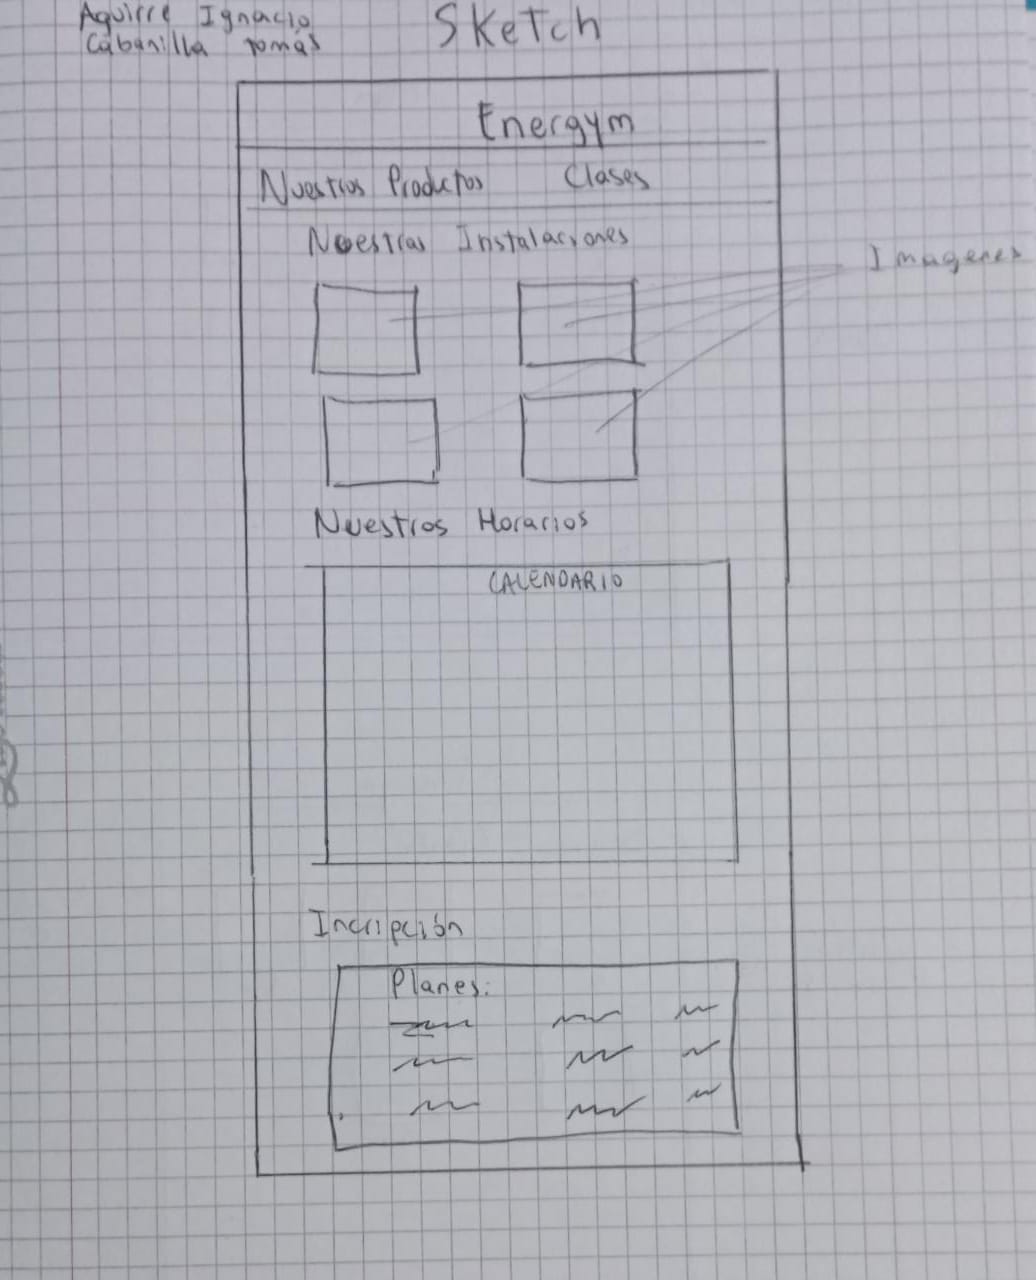 Aguirre Ignacio
Cabanilla Tomás
Sketch
Energym
Nuestros Productos Clases
Nuestras Instalaciones
Imagenes
Nuestros Horarios
CALENDARIO
Incripción
Planes: